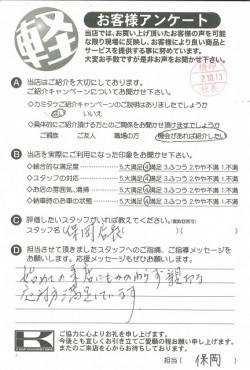 軽
お客様アンケート
当店では、お買い上げ頂いたお客様の声を可能
な限り現場に反映し、お客様により良い商品と
サービスを提供する事に努めています。
大変お手数ですが是非お声をお聞かせ下さい。
検印
2.10.13
社長
A 当店はご紹介を大切にしております。
ご紹介キャンペーンについてお聞かせ下さい
◇カミタケご紹介キャンペーンのご説明はありましたでしょうか
はい いいえ
◇具体的にご紹介頂ける方とのご関係をお聞かせ頂けますでしょうか
ご親族 ご友人 職場の方 機会があれば紹介したい
B 当店を実際にご利用になった印象をお聞かせ下さい。
◇総合的な満足度 5.大満足 4.満足 3.ふつう 2.やや不満 1.不満
◇スタッフの対応 5.大満足 4.満足 3.ふつう 2.やや不満 1.不満
◇お店の雰囲気、清掃 5.大満足 4.満足 3.ふつう 2.やや不満 1.不満
◇納車時のお車の状態 5.大満足 4.満足 3.ふつう 2.やや不満 1.不満
C 評価したいスタッフがいれば教えてください。(複数回答可)
スタッフ名( 保岡店長 )( )
D 担当させて頂きましたスタッフへのご指摘、ご指導メッセージを
お願いします。応援メッセージもぜひお願いします!!
初めての来店にもかかわらず親切な
応対で満足しています
K
ご協力に心よりお礼を申し上げます。
今後とも宜しくお引き立てご愛顧の程お願い申し上げます。
またのご来店を心からお待ちしております。
担当( 保岡 )